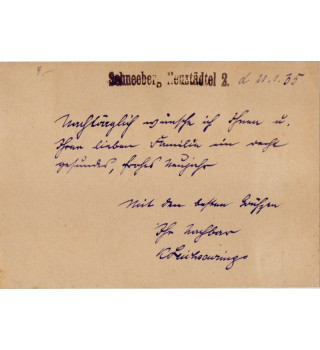 4.-
Schneeberg, Neustädtel 2. d 21.1.35
Nachträglich wünsche ich Ihnen u.
Ihrer lieben Familie ein recht
gesundes, frohes Neujahr
Mit den besten Grüßen
Ihr Nachbar